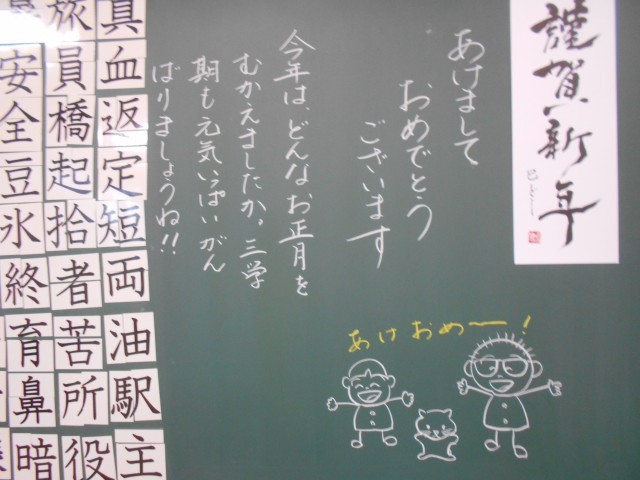 謹賀新年
巳どし
あけまして
おめでとう
ございます
今年は、どんなお正月を
むかえましたか。三学
期も元気いっぱいがん
ばりましょうね!!
あけおめー!
真
血
返
定
短
両
油
駅
主
旅
員
橋
起
拾
者
苦
所
役
安
全
豆
氷
終
育
鼻
暗